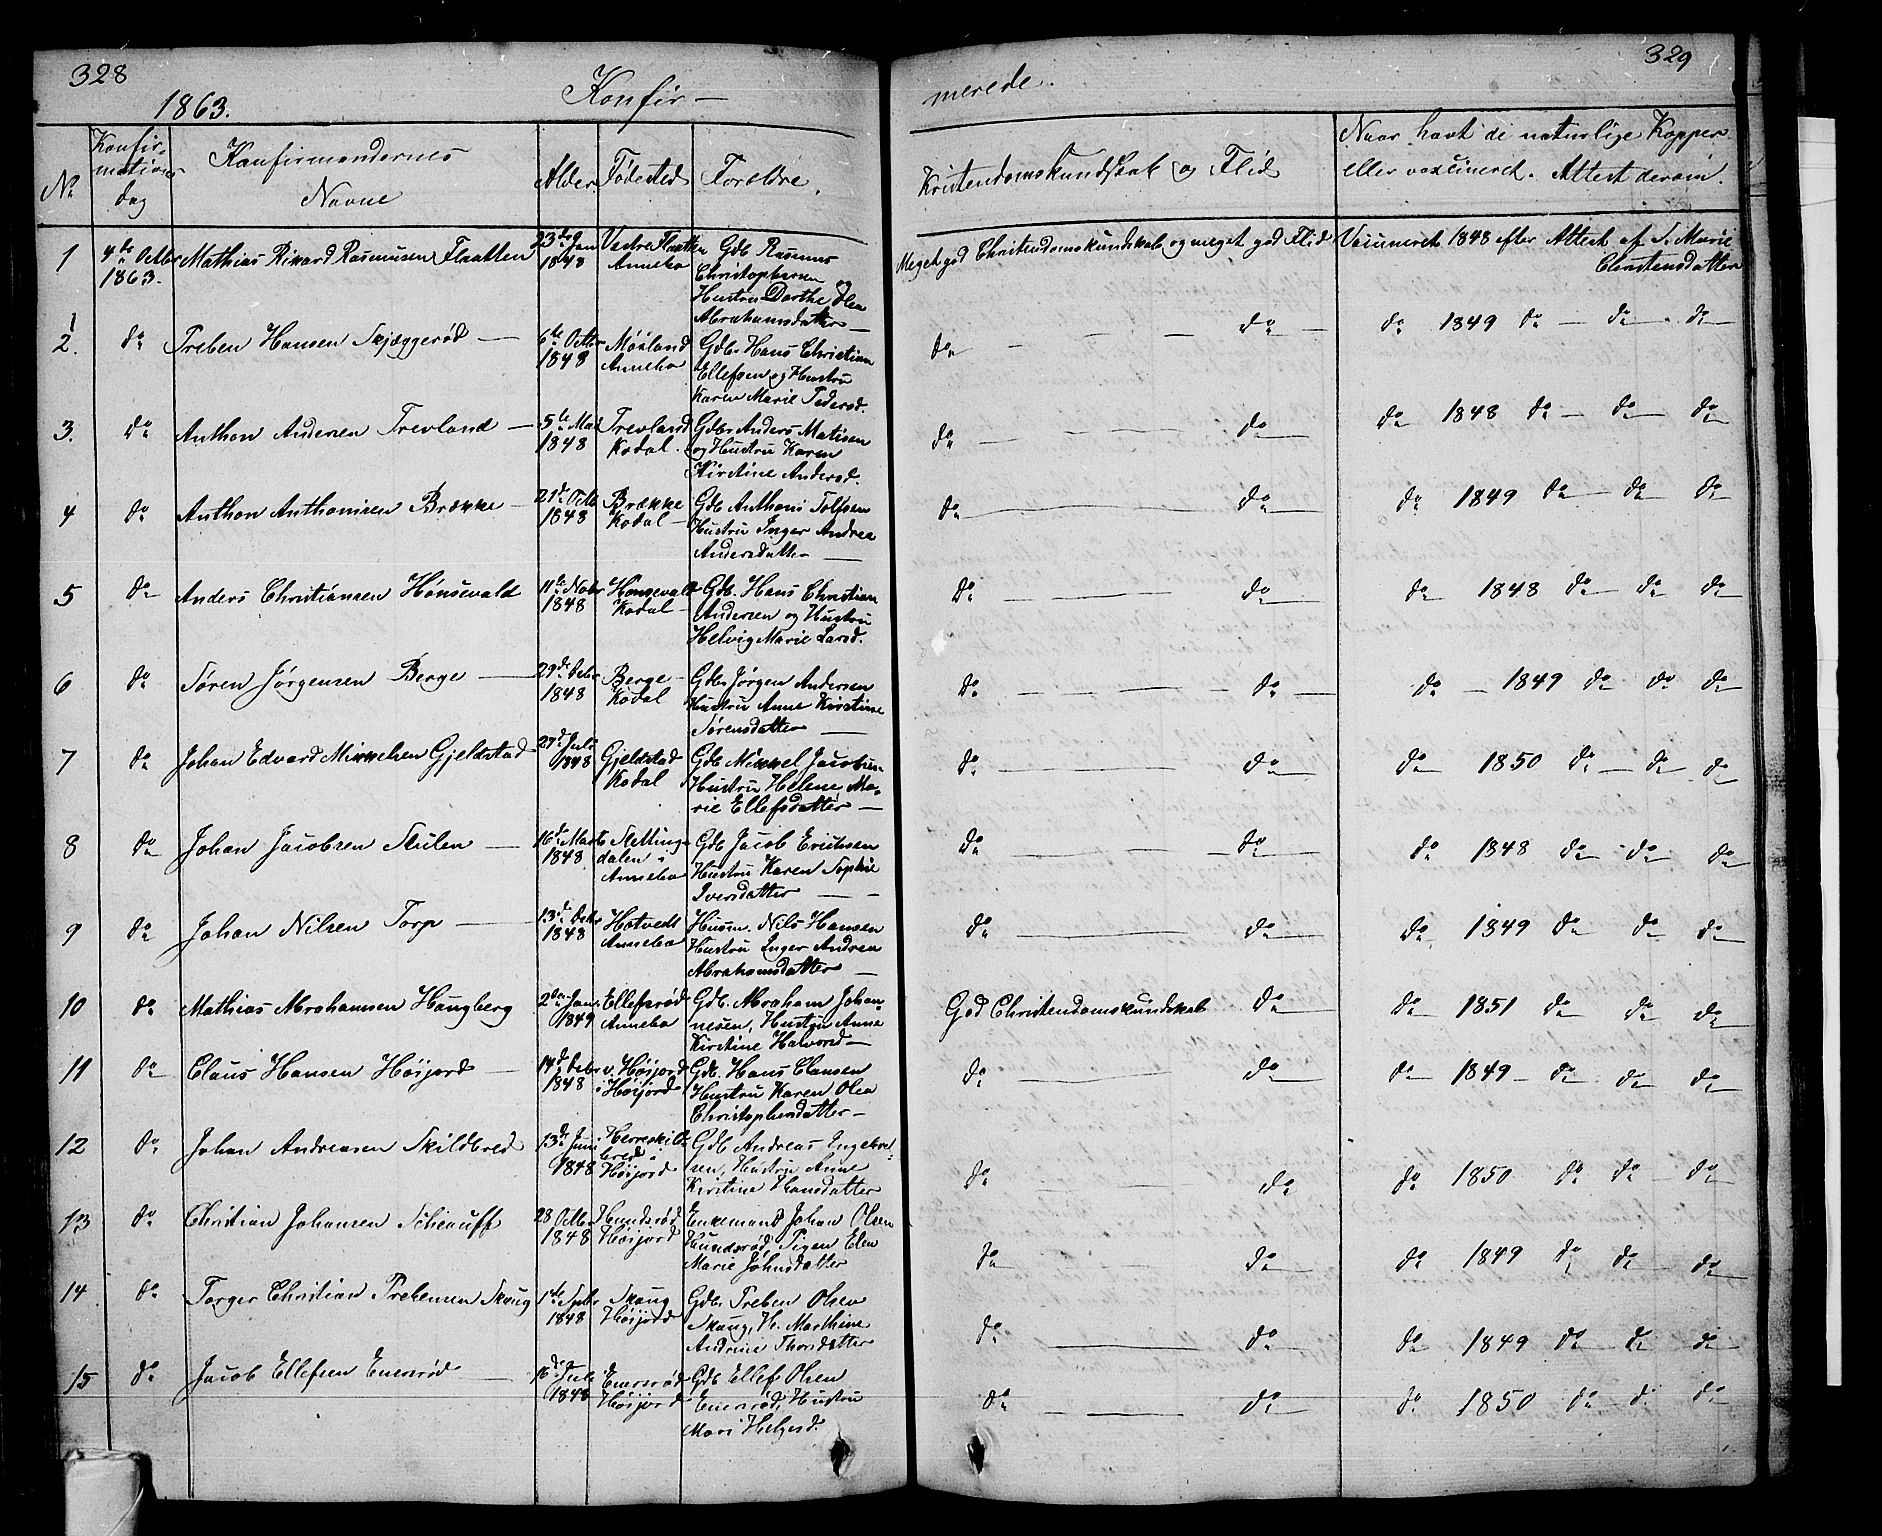 328
1863.
Konfir-
merede.
329
No
Konfir-
mations
dag
Konfirmandernes
Navne
Alder
Fødested
Forældre.
Kristendomskundskab og Flid
Naar havt de naturlige Kopper
eller vaxcineret. Attest derom.
1
4de Octbr
1863.
Mathias Rikard Rasmusen Flaatten
23de Jan
1848
Vestre Flaatten
Annebo
Gdb. Rasmus
Christophersen
Hustru Dorthe Olea
Abrahamsdatter
Meget god Christendomskundskab og meget god Flid
Vaxineret 1848 efter Attest af S. Marie
Christensdatter
1
2.
do
Preben Hansen Skjæggerød
6te Octbr
1848
Møiland
Annebo
Gdb. Hans Christian
Ellefsen og Hustru
Karen Marie Pedersd.
do — — — — do —
do 1849 do — do — do
3.
do
Anthon Andersen Trevland
5te Mai
1848
Trevland
Kodal.
Gdb. Anders Matisen
og Hustru Karen
Kirstine Andersd.
do — — — do
do 1848 do — do — do
4
do
Anthon Anthonisen Brække
21de Octb.
1848
Brække
Kodal
Gdb Anthoni Tolfsen
Hustru Inger Andrea
Andersdatter
do — do
do 1849 do — do — do
5
do
Anders Christiansen Hønsevald
11te Novbr
1848
Hønsevald
Kodal
Gdb. Hans Christian
Andersen og Hustru
Helvig Marie Larsd.
do — do
do 1848 do do do
6
do
Søren Jørgensen Berge
29de Decbr
1848
Berge
Kodal
Gdb. Jørgen Andersen
Hustru Anne Kirstine
Sørensdatter
do — — — do —
do — 1849 do do do
7
do
Johan Edvard Mikkelsen Gjeldstad
27de Juli
1848
Gjeldstad
Kodal
Gdb Mikkel Jacobsen
Hustru Helene Ma-
rie Ellefsdatter
do — do
do 1850 do — do do
8
do
Johan Jacobsen Skulen
16de Marts
1848
Slettinge
dalen i
Annebo
Gdb Jacob Erichsen
Hustru Karen Sophie
Iversdatter
do — — — do
do 1848 do do do
9
do
Johan Nilsen Torp
13de Decbr
1848
Hotvedt
Annebo
Husm. Nils Hansen
Hustru Inger Andrea
Abrahamsdatter
do — do
do 1849 do do do
10
do
Mathias Abrahamsen Haugberg
2den Jan.
1849
Ellefsrød
Annebo
Gdb. Abraham Johan-
nesen, Hustru Anne
Kirstine Halvorsd
God Christendomskundskab do
do 1851 do do do
11
do
Claus Hansen Høijord
14de Decbr
1848
v. Høijord
i Høijord
Gdb. Hans Clausen
Hustru Karen Olea
Christophersdatter
do — do
do 1849 — do do do
12
do
Johan Andreasen Skildbred
13de Juni
1848
Herreskild-
bred i
Høijord
Gdb Andreas Ingebret-
sen, Hustru Anne
Kirstine Hansdatter
do — do
do 1850 do do — do
13
do
Christian Johansen
28 Octbr
1848
Hundsrød
Høijord
Enkemand Johan Olsen
Hundsrød, Pigen Elen
Marie Johnsdatter
do — do
do 1849 do do do
14
do
Torger Christian Prebensen Skaug
1ste Septbr
1848
Skaug
Høijord
Gdb. Preben Olsen
Skaug, H. Marthine
Andrine Thorsdatter
do — do
do 1849 do do do
15
do
Jacob Ellefsen Enersrød
16de Juli
1848
Enersrød
Høijord
Gdb Ellef Olsen
Enersrød, Hustru
Mari Helgesd.
do — do
do 1850 do do do